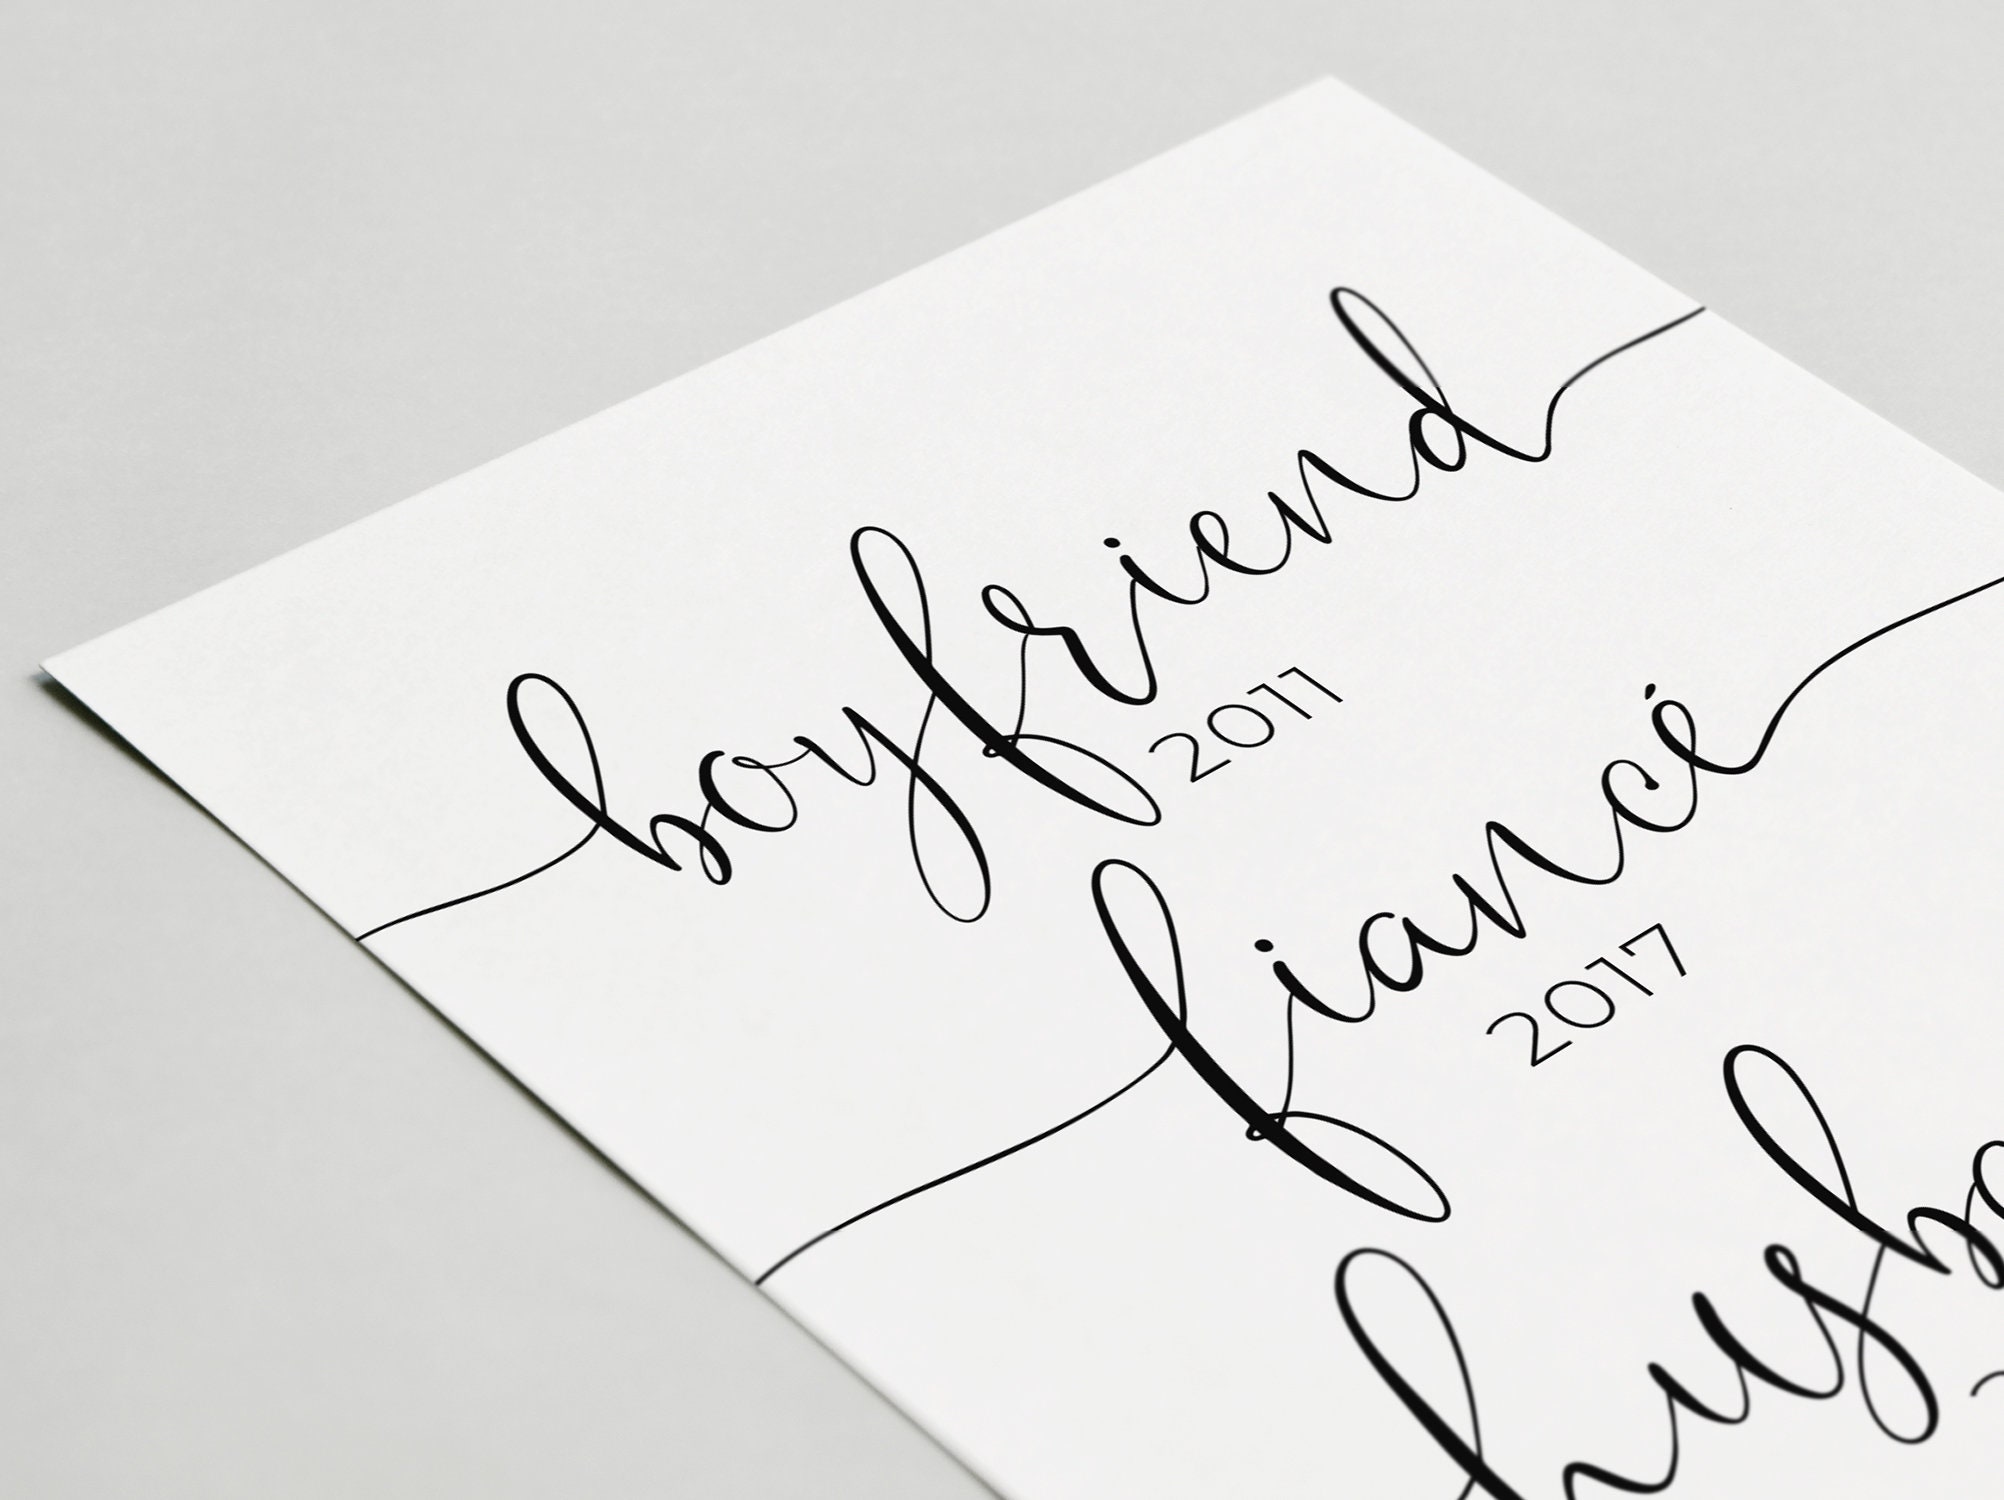 boyfriend
2011
fiancé
2017